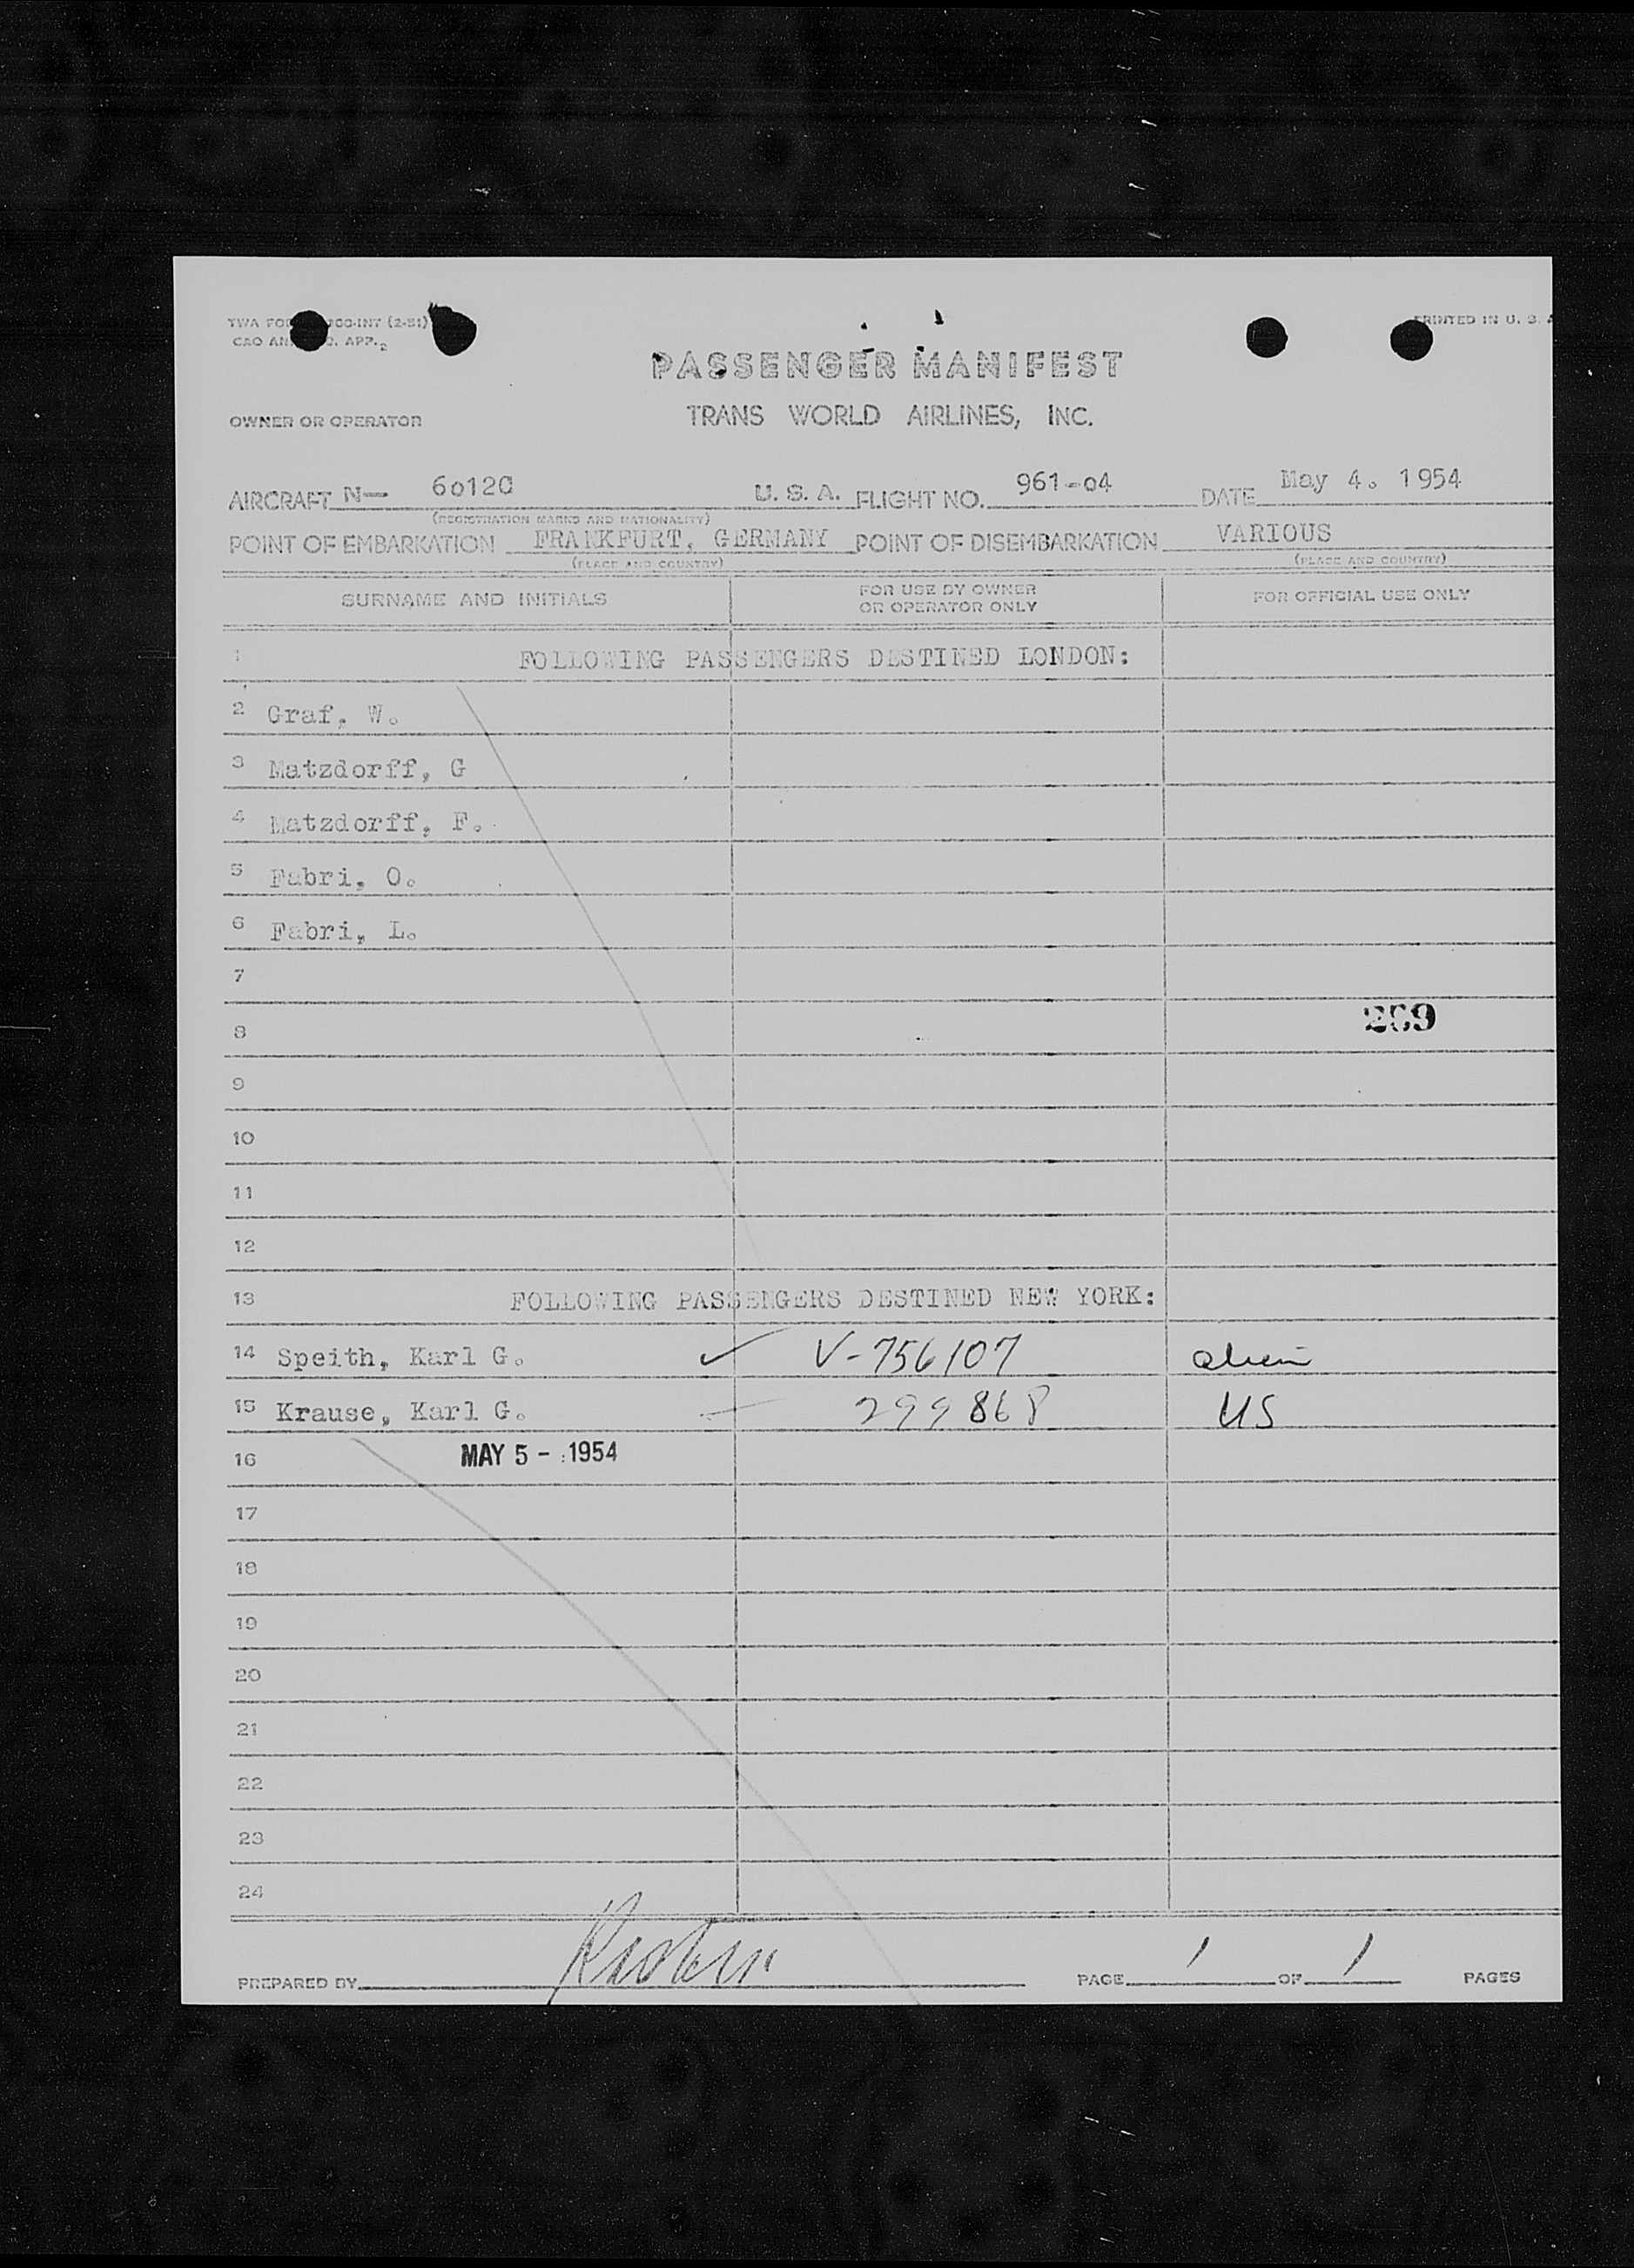 PRINTED IN U. S. A
PASSENGER MANIFEST
OWNER OR OPERATOR TRANS WORLD AIRLINES, INC.
AIRCRAFT N— U. S. A. FLIGHT NO. 961-04 DATE May 4. 1954
(REGISTRATION MARKS AND NATIONALITY)
POINT OF EMBARKATION FRANKFURT, GERMANY POINT OF DISEMBARKATION VARIOUS
(PLACE AND COUNTRY) (PLACE AND COUNTRY)
SURNAME AND INITIALS FOR USE BY OWNER OR OPERATOR ONLY FOR OFFICIAL USE ONLY
1 FOLLOWING PASSENGERS DESTINED LONDON:
2 Graf, W.
3 Matzdorff, G
4 Matzdorff, F.
5 Fabri, O.
6 Fabri, L.
7
8
9
10
11
12
13 FOLLOWING PASSENGERS DESTINED NEW YORK:
14 Speith, Karl G. ✓ V-756107 alien
15 Krause, Karl G. 299868 US
16 MAY 5 - 1954
17
18
19
20
21
22
23
24
PREPARED BY PAGE 1 OF 1 PAGES